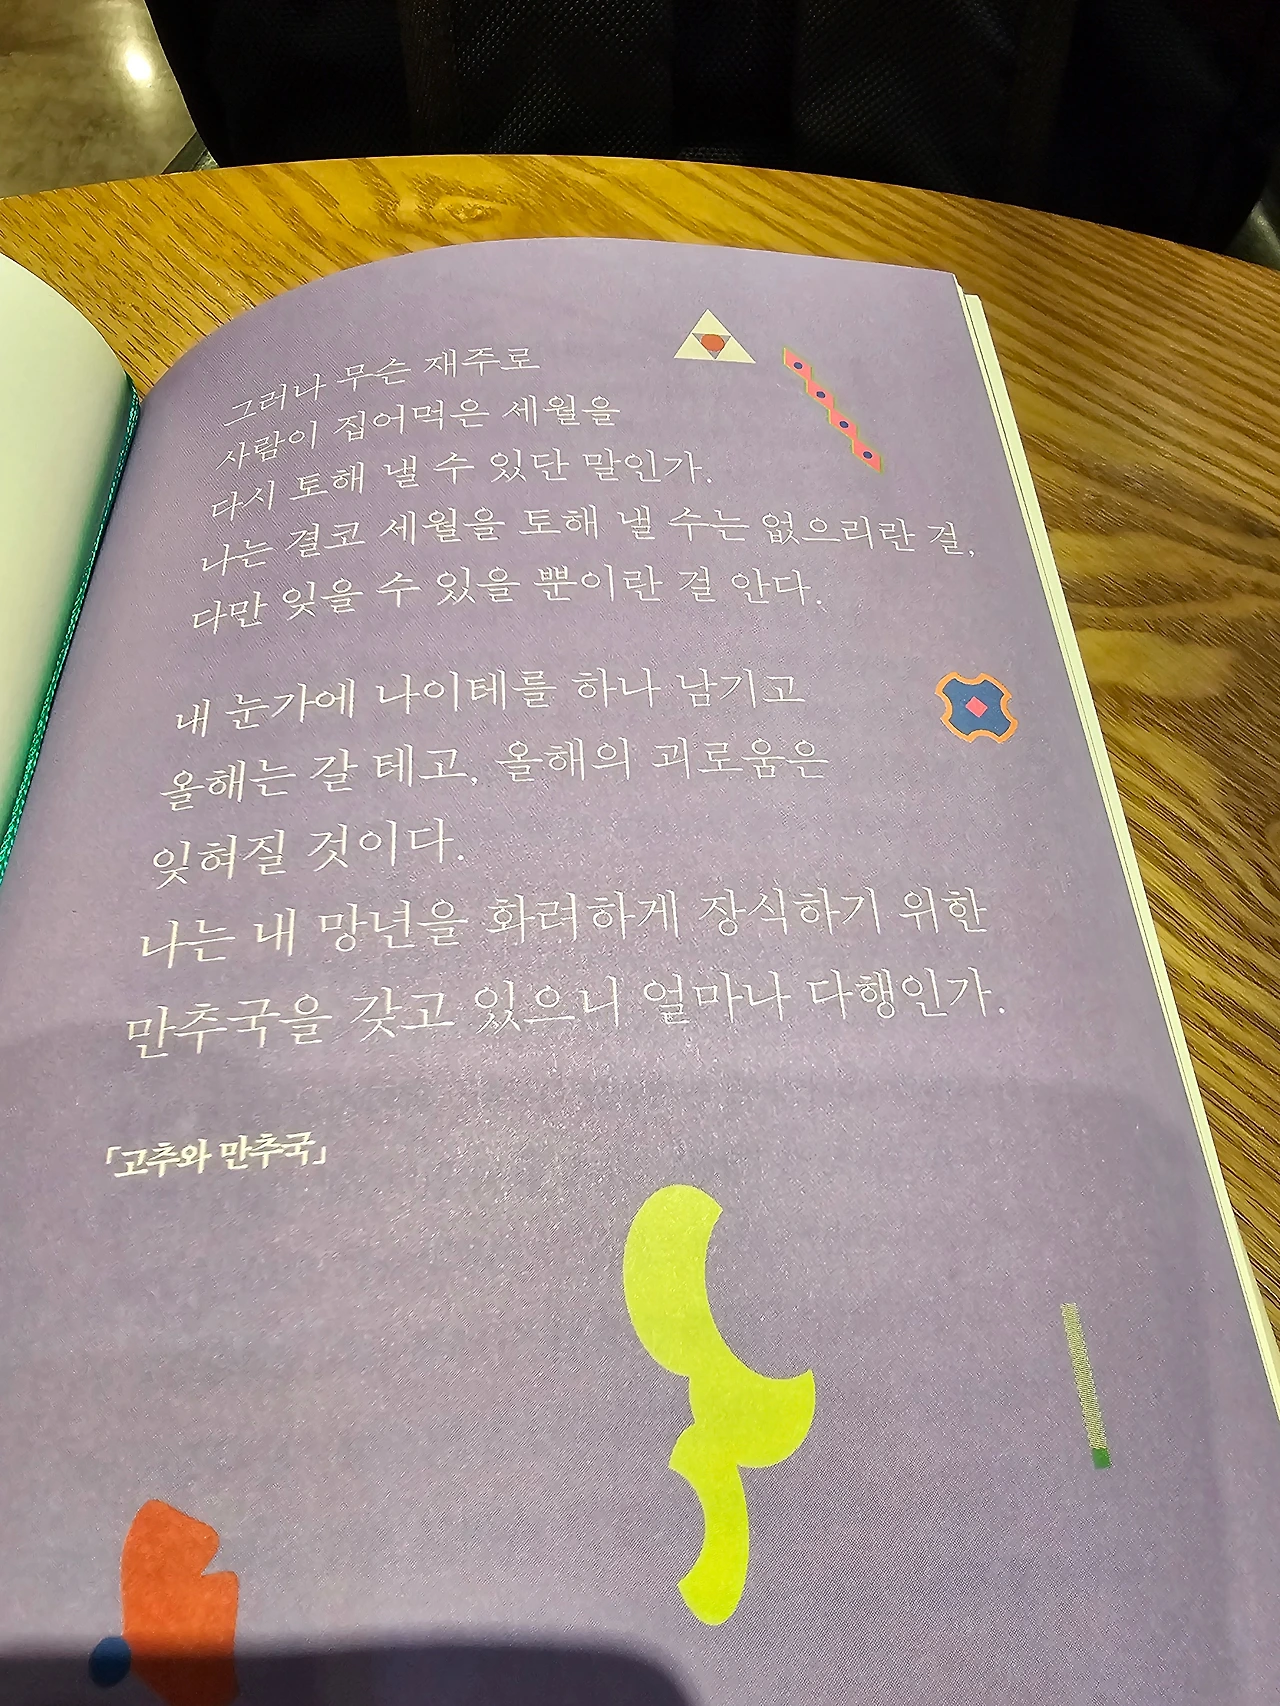 그러나 무슨 재주로
사람이 집어먹은 세월을
다시 토해 낼 수 있단 말인가.
나는 결코 세월을 토해 낼 수는 없으리란 걸,
다만 잊을 수 있을 뿐이란 걸 안다.
내 눈가에 나이테를 하나 남기고
올해는 갈 테고, 올해의 괴로움은
잊혀질 것이다.
나는 내 망년을 화려하게 장식하기 위한
만추국을 갖고 있으니 얼마나 다행인가.
「고추와 만추국」